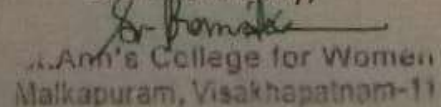 ...Ann's College for Women
Malkapuram, Visakhapatnam-11